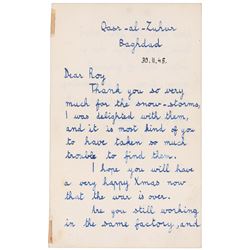 Qasr-al-Zuhur
Baghdad
30.11.45.
Dear Roy
Thank you so very
much for the snow-storms,
I was delighted with them,
and it is most kind of you
to have taken so much
trouble to find them.
I hope you will have
a very happy Xmas now
that the war is over.
Are you still working
in the same factory, and